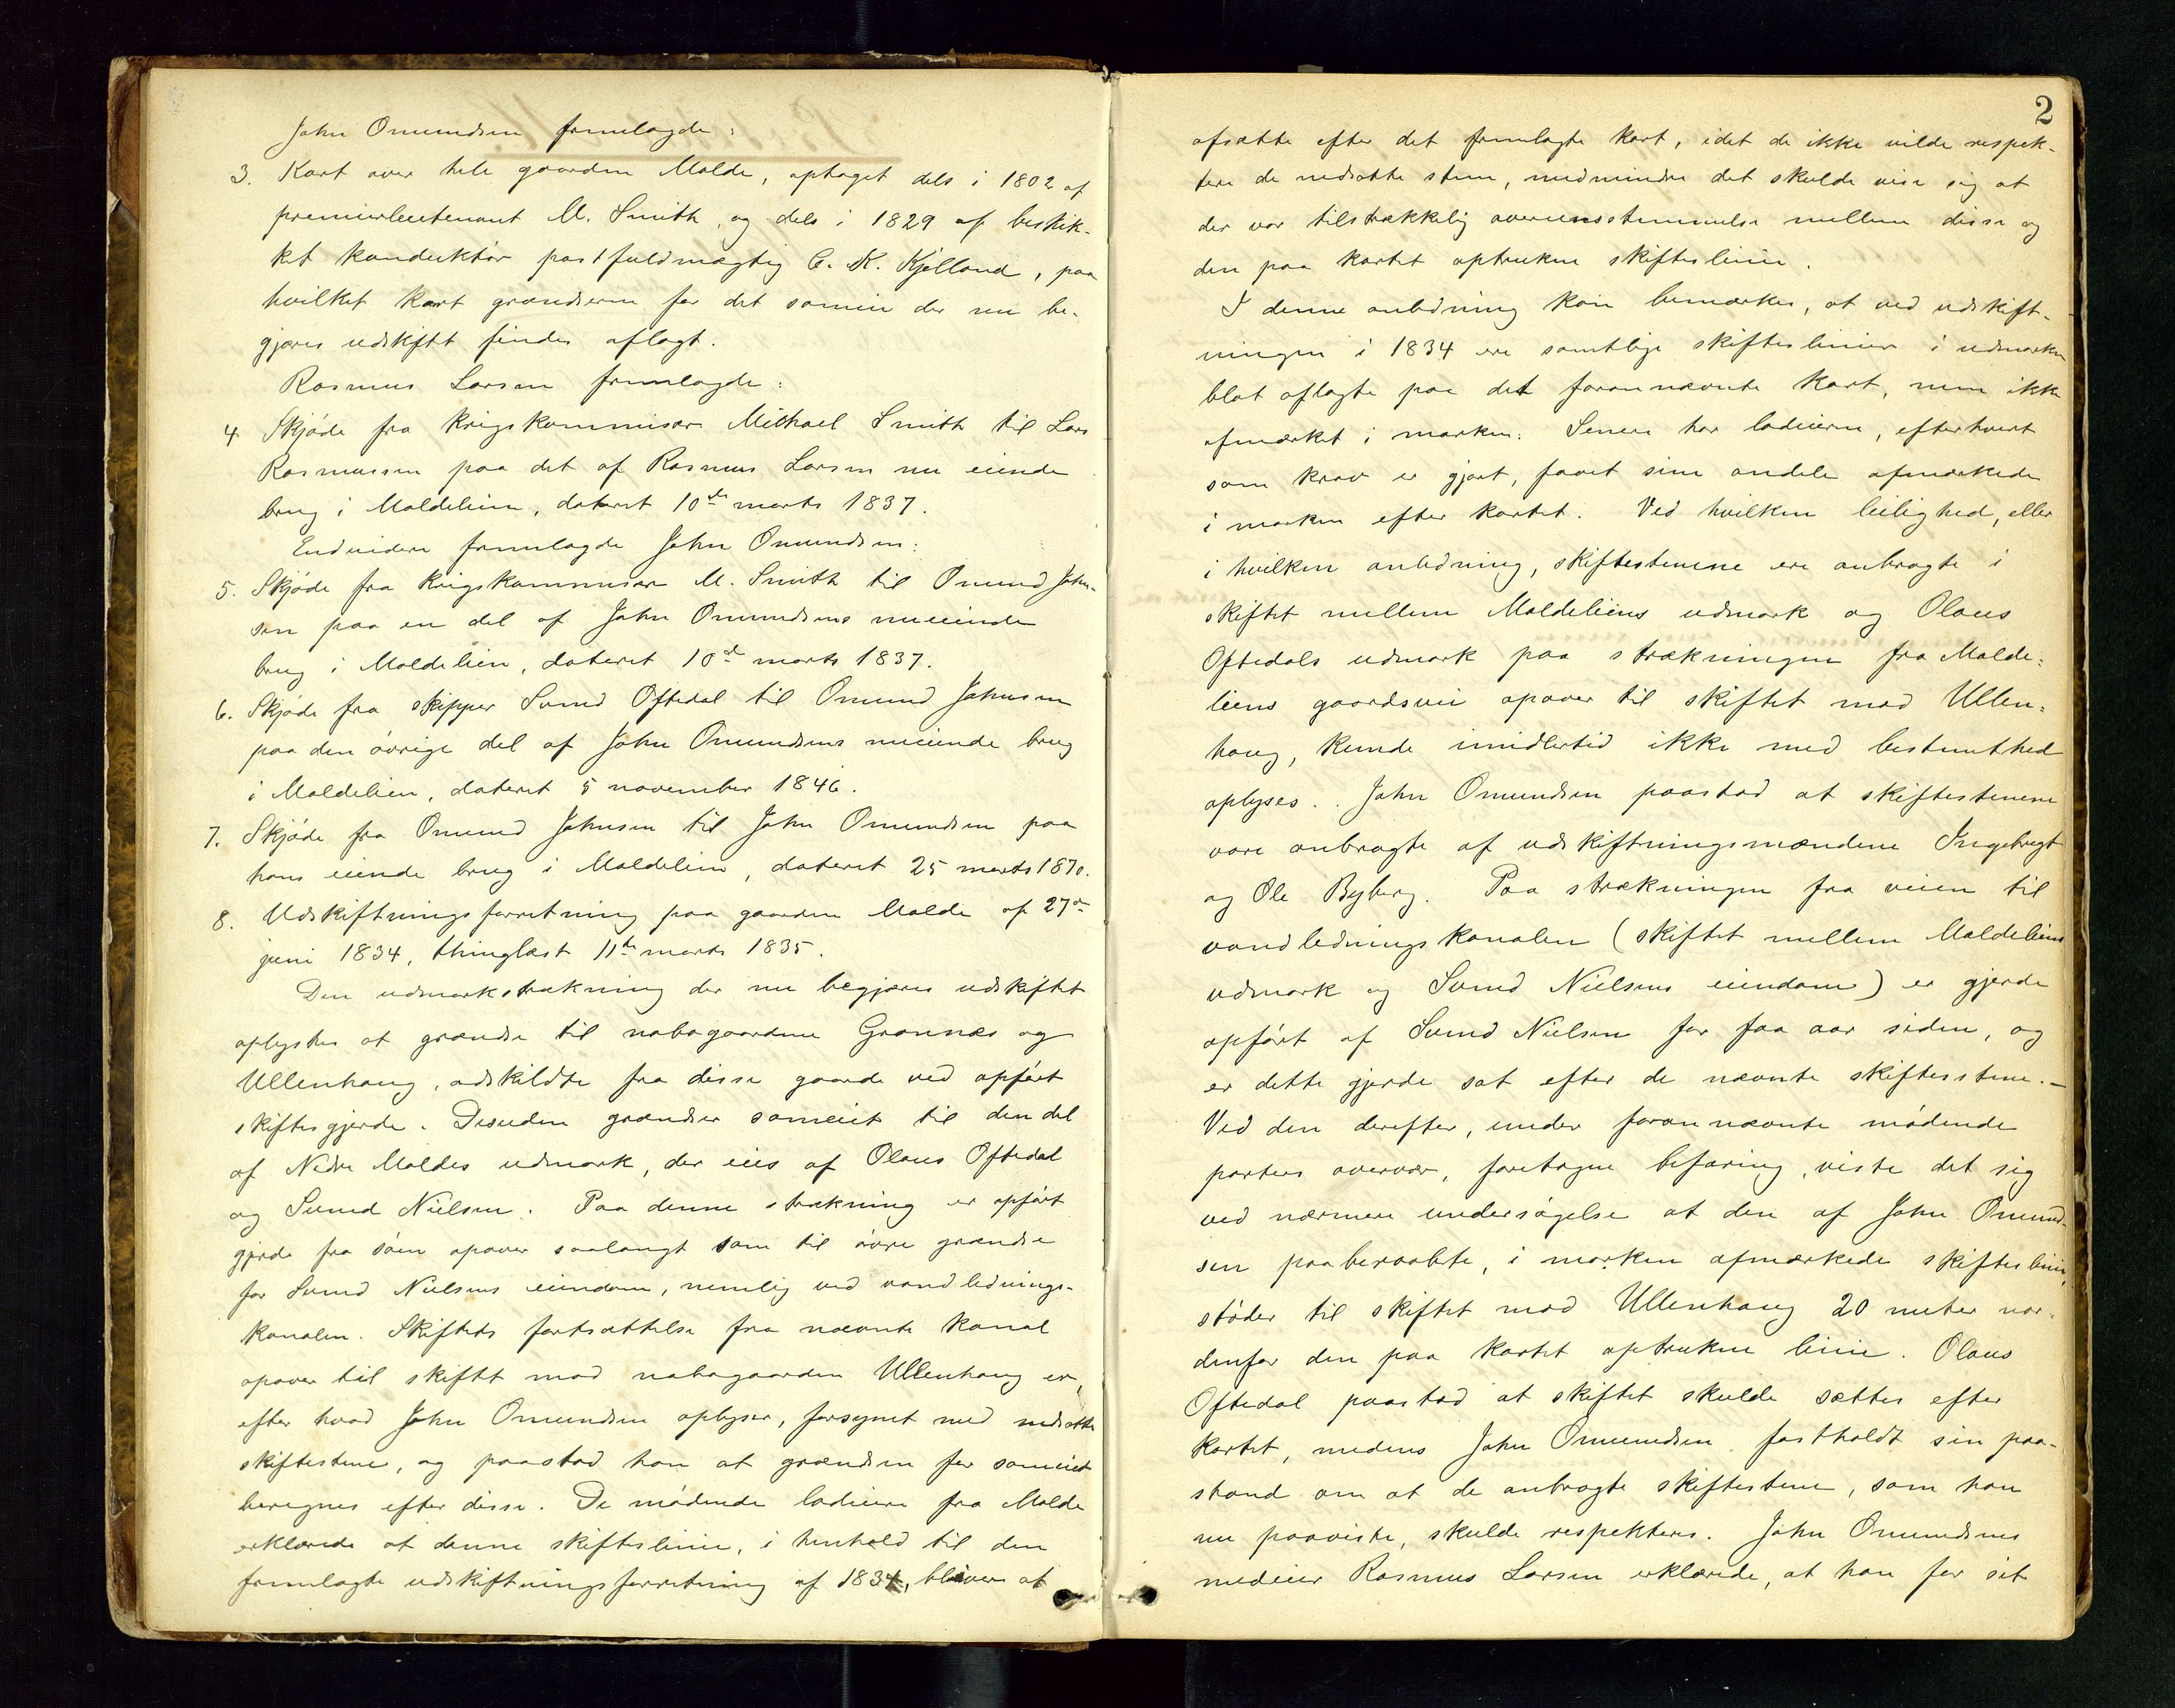 John Omundsen fremlagde:
3. Kart over hele gaarden Malde, optaget dels i 1802 af
premierleutenant M. Smith, og dels i 1829 af beskik-
ket konduktör postfuldmægtig C. K. Kjelland, paa
hvilket kart grændserne for det sameie der nu be-
gjæres udskiftt findes aflagt.
Rasmus Larsen fremlagde:
4 Skjöde fra krigskommisær Michael Smith til Lars
Rasmussen paa det af Rasmus Larsen nu eiende
brug i Maldelien, dateret 10de marts 1837.
Endvidere fremlagde John Omundsen:
5. Skjöde fra krigskommisær M. Smith til Omund John-
sen paa en del af John Omundsens nueiende
brug i Maldelien, dateret 10de marts 1837.
6. Skjöde fra skipper Svend Oftedal til Omund Johnsen
paa den övrige del af John Omundsens nueiende brug
i Maldelien, dateret 5 november 1846.
7. Skjöde fra Omund Johnsen til John Omundsen paa
hans eiende brug i Maldelien, dateret 25 marts 1870.
8. Udskiftningsforretning paa gaarden Malde af 27de
juni 1834, thinglæst 11te marts 1835.
Den udmarkstrækning der nu begjæres udskiftet
oplystes at grændse til nabogaardene Grannæs og
Ullenhaug, adskildte fra disse gaarde ved opfört
skiftesgjerde. Desuden grændser sameiet til den del
af Nedre Maldes udmark, der eies af Olaus Oftedal
og Svend Nielsen. Paa denne strækning er opfört
gjerde fra söen opover saalangt som til övre grændse
for Svend Nielsens eiendom, nemlig ved vandlednings-
kanalen. Skiftets fortsættelse fra nævnte kanal
opover til skiftet mod nabogaarden Ullenhaug er,
efter hvad John Omundsen oplyser, forsynet med nedsatte
skiftestene, og paastod han at grændsen for sameiet
beregnes efter disse. De mödende lodeiere fra Malde
erklærede at denne skifteslinie, i henhold til den
fremlagte udskiftningsforretning af 1834, bliver at
2
afsætte efter det fremlagte kart, idet de ikke vilde respek-
tere de nedsatte stene, medmindre det skulde vise sig at
der var tilstrækkelig overensstemmelse mellem disse og
den paa kartet optrukne skifteslinie.
I denne anledning kan bemærkes, at ved udskift-
ningen i 1834 ere samtlige skifteslinier i udmarken
blot aflagte paa det forannævnte kart, men ikke
afmærket i marken. Senere har lodeierne, efterhvert
som krav er gjort, faaet sine andele afmærkede
i marken efter kartet. Ved hvilken leilighed, eller
i hvilken anledning, skiftestenene ere anbragte i
skiftet mellem Maldeliens udmark og Olaus
Oftedals udmark paa strækningen fra Malde-
liens gaardsvei opover til skiftet mod Ullen-
haug, kunde imidlertid ikke med bestemthed
oplyses. John Omundsen paastod at skiftestenene
vare anbragte af udskiftningsmændene Ingebregt
og Ole Byberg. Paa strækningen fra veien til
vandledningskanalen (skiftet mellem Maldeliens
udmark og Svend Nielsens eiendom) er gjerde
opfört af Svend Nielsen for faa aar siden, og
er dette gjerde sat efter de nævnte skiftesstene. –
Ved den derefter, under forannævnte mödende
parters overvær, foretagne befaring, viste det sig
ved nærmere undersögelse at den af John Omund-
sen paaberaabte, i marken afmærkede skifteslinie,
stöder til skiftet mod Ullenhaug 20 meter nor-
denfor den paa kartet optrukne linie. Olaus
Oftedal paastod at skiftet skulde sættes efter
kartet, medens John Omundsen fastholdt sin paa-
stand om at de anbragte skiftestene, som han
nu paaviste, skulde respekteres. John Omundsens
medeier Rasmus Larsen erklærede, at han for sit